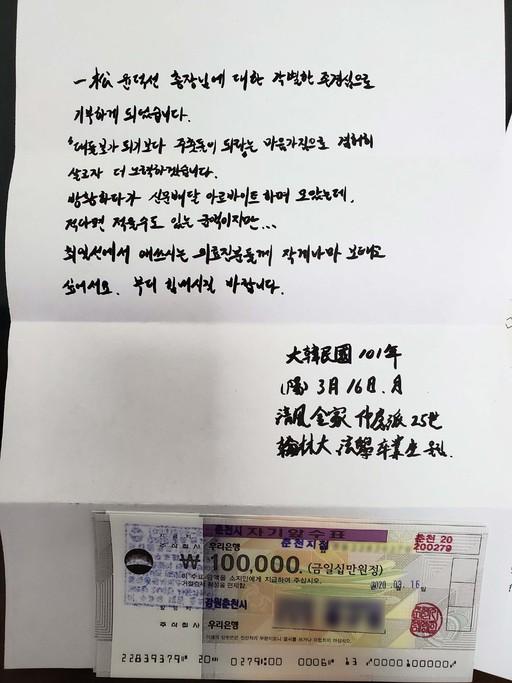 一松 윤덕선 총장님에 대한 각별한 존경심으로
기부하게 되었습니다.
"대들보가 되기보다 주춧돌이 되라"는 마음가짐으로 겸허히
살고자 더 노력하겠습니다.
방황하다가 신문배달 아르바이트하며 모았는데,
적다면 적을수도 있는 금액이지만...
최일선에서 애쓰시는 의료진분들께 작게나마 보태고
싶어서요. 부디 힘내시길 바랍니다.
大韓民國 101年
(陽) 3月 16日. 月
淸風金家 仲房派 25世
翰林大 法學 卒業生 올림.
춘천시 자기앞수표
주식회사 우리은행 춘천지점
춘천 20
200279
₩ 100,000. (금일십만원정)
이 수표 금액을 소지인에게 지급하여 주십시오.
거절증서 작성을 면제함.
2020.03.16
강원춘천시
주식회사 우리은행
22839379 20 0279 00 0006 13 0000100000